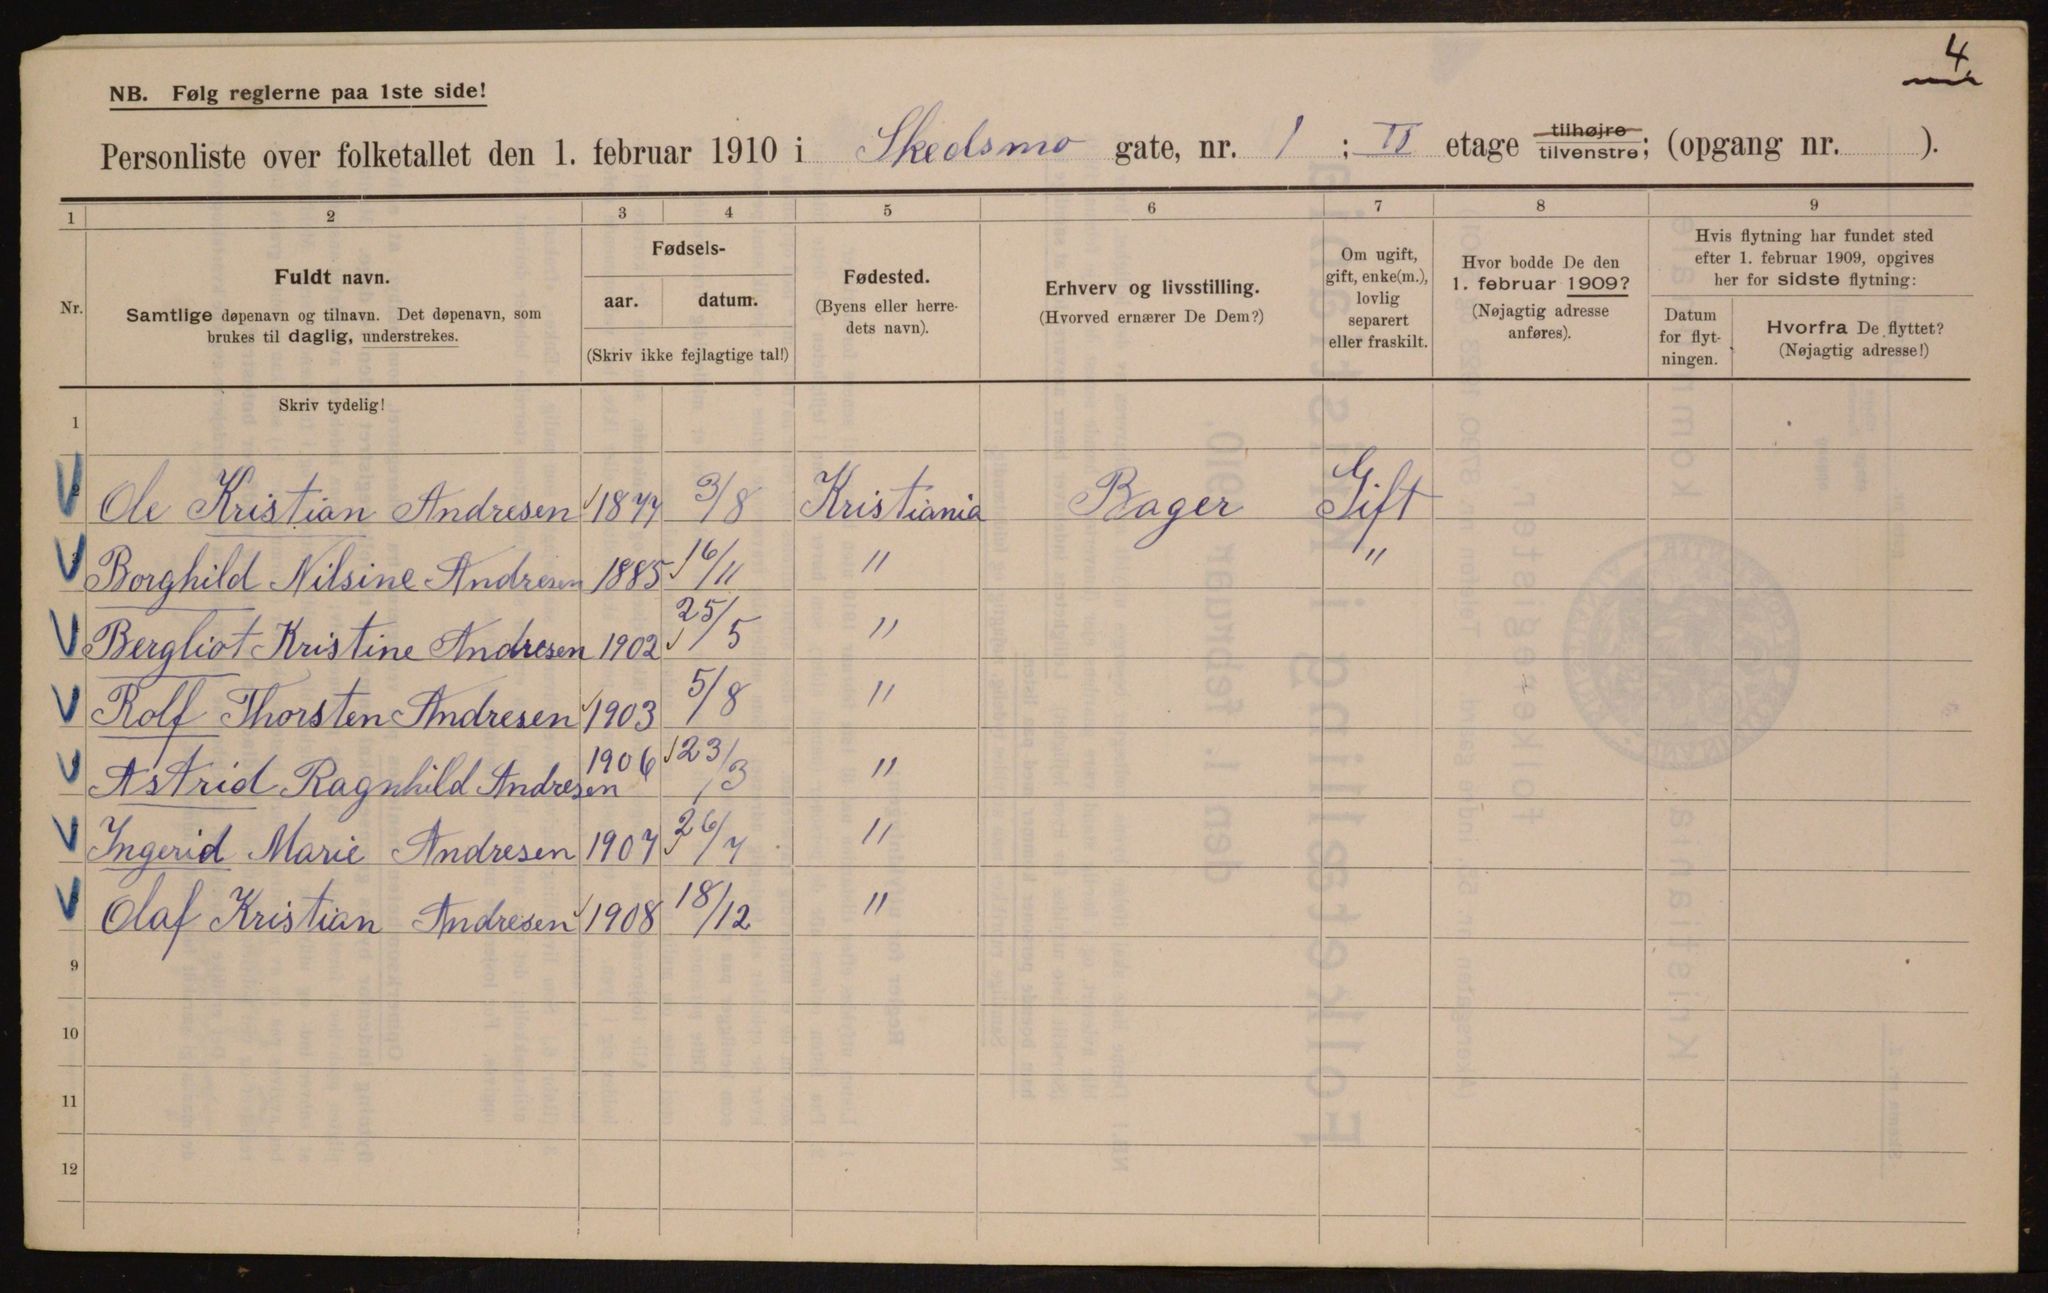 4
NB. Følg reglerne paa 1ste side!
Personliste over folketallet den 1. februar 1910 i Skedsmo gate, nr. 1 ; II etage tilhøjre tilvenstre; (opgang nr. ).
1 2 3 4 5 6 7 8 9
Nr.
Fuldt navn.
Samtlige døpenavn og tilnavn. Det døpenavn, som
brukes til daglig, understrekes.
Fødsels-
aar. datum.
(Skriv ikke fejlagtige tal!)
Fødested.
(Byens eller herre-
dets navn).
Erhverv og livsstilling.
(Hvorved ernærer De Dem?)
Om ugift,
gift, enke(m.),
lovlig
separert
eller fraskilt.
Hvor bodde De den
1. februar 1909?
(Nøjagtig adresse
anføres).
Hvis flytning har fundet sted
efter 1. februar 1909, opgives
her for sidste flytning:
Datum
for flyt-
ningen.
Hvorfra De flyttet?
(Nøjagtig adresse!)
Skriv tydelig!
1
Ole Kristian Andresen 1877 3/8 Kristiania Bager Gift
Borghild Nilsine Andresen 1885 16/11 " "
Bergliot Kristine Andresen 1902 25/5 "
Rolf Thorsten Andresen 1903 5/8 "
Astrid Ragnhild Andresen 1906 23/3 "
Ingerid Marie Andresen 1907 26/7 "
Olaf Kristian Andresen 1908 18/12 "
9
10
11
12